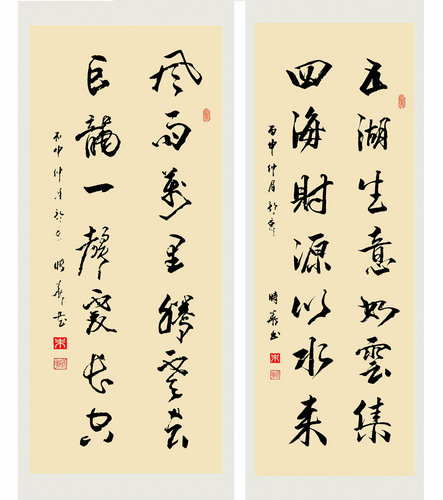 五湖生意如雲集
四海財源以水来
丙申仲月於京 時華書
風雨萬里騰雲去
巨龍一聲震長空
丙申仲月於京 時華書